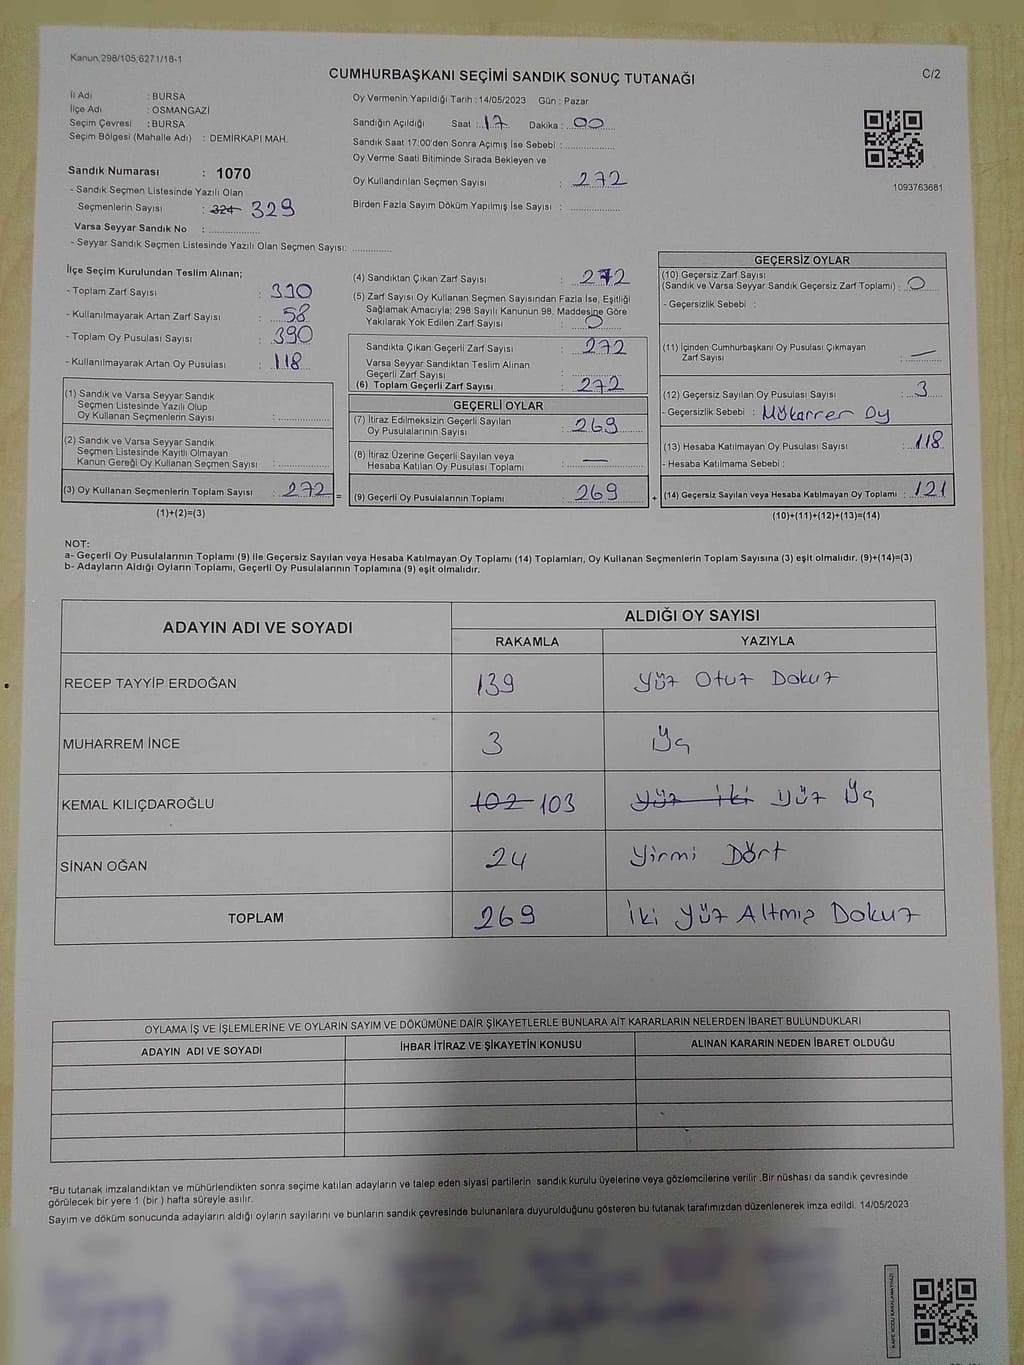 Kanun;298/105,6271/18-1
CUMHURBAŞKANI SEÇİMİ SANDIK SONUÇ TUTANAĞI
C/2
İl Adı : BURSA
İlçe Adı : OSMANGAZİ
Seçim Çevresi : BURSA
Seçim Bölgesi (Mahalle Adı) : DEMİRKAPI MAH.
Sandık Numarası : 1070
- Sandık Seçmen Listesinde Yazılı Olan
Seçmenlerin Sayısı : 324 329
Varsa Seyyar Sandık No : ..................
- Seyyar Sandık Seçmen Listesinde Yazılı Olan Seçmen Sayısı: ..............
Oy Vermenin Yapıldığı Tarih : 14/05/2023 Gün : Pazar
Sandığın Açıldığı Saat : 17 Dakika : 00
Sandık Saat 17:00'den Sonra Açımış İse Sebebi : ..................
Oy Verme Saati Bitiminde Sırada Bekleyen ve
Oy Kullandırılan Seçmen Sayısı : 272
Birden Fazla Sayım Döküm Yapılmış İse Sayısı : ..................
1093763681
İlçe Seçim Kurulundan Teslim Alınan;
- Toplam Zarf Sayısı : 330
- Kullanılmayarak Artan Zarf Sayısı : 58
- Toplam Oy Pusulası Sayısı : 390
- Kullanılmayarak Artan Oy Pusulası : 118
(1) Sandık ve Varsa Seyyar Sandık
Seçmen Listesinde Yazılı Olup
Oy Kullanan Seçmenlerin Sayısı : ..................
(2) Sandık ve Varsa Seyyar Sandık
Seçmen Listesinde Kayıtlı Olmayan
Kanun Gereği Oy Kullanan Seçmen Sayısı : ..................
(3) Oy Kullanan Seçmenlerin Toplam Sayısı : 272 =
(1)+(2)=(3)
(4) Sandıktan Çıkan Zarf Sayısı : 272
(5) Zarf Sayısı Oy Kullanan Seçmen Sayısından Fazla İse, Eşitliği
Sağlamak Amacıyla; 298 Sayılı Kanunun 98. Maddesine Göre
Yakılarak Yok Edilen Zarf Sayısı : 0
Sandıkta Çıkan Geçerli Zarf Sayısı : 272
Varsa Seyyar Sandıktan Teslim Alınan
Geçerli Zarf Sayısı : ..................
(6) Toplam Geçerli Zarf Sayısı : 272
GEÇERLİ OYLAR
(7) İtiraz Edilmeksizin Geçerli Sayılan
Oy Pusulalarının Sayısı : 269
(8) İtiraz Üzerine Geçerli Sayılan veya
Hesaba Katılan Oy Pusulası Toplamı : —
(9) Geçerli Oy Pusulalarının Toplamı : 269 +
GEÇERSİZ OYLAR
(10) Geçersiz Zarf Sayısı
(Sandık ve Varsa Seyyar Sandık Geçersiz Zarf Toplamı) : 0
- Geçersizlik Sebebi :
(11) İçinden Cumhurbaşkanı Oy Pusulası Çıkmayan
Zarf Sayısı : —
(12) Geçersiz Sayılan Oy Pusulası Sayısı : 3
- Geçersizlik Sebebi : Mükarrer Oy
(13) Hesaba Katılmayan Oy Pusulası Sayısı : 118
- Hesaba Katılmama Sebebi :
(14) Geçersiz Sayılan veya Hesaba Katılmayan Oy Toplamı : 121
(10)+(11)+(12)+(13)=(14)
NOT:
a- Geçerli Oy Pusulalarının Toplamı (9) ile Geçersiz Sayılan veya Hesaba Katılmayan Oy Toplamı (14) Toplamları, Oy Kullanan Seçmenlerin Toplam Sayısına (3) eşit olmalıdır. (9)+(14)=(3)
b- Adayların Aldığı Oyların Toplamı, Geçerli Oy Pusulalarının Toplamına (9) eşit olmalıdır.
ADAYIN ADI VE SOYADI ALDIĞI OY SAYISI
RAKAMLA YAZIYLA
RECEP TAYYİP ERDOĞAN 139 Yüz Otuz Dokuz
MUHARREM İNCE 3 Üç
KEMAL KILIÇDAROĞLU 102 103 Yüz İki Yüz Üç
SİNAN OĞAN 24 Yirmi Dört
TOPLAM 269 İki Yüz Altmış Dokuz
OYLAMA İŞ VE İŞLEMLERİNE VE OYLARIN SAYIM VE DÖKÜMÜNE DAİR ŞİKAYETLERLE BUNLARA AİT KARARLARIN NELERDEN İBARET BULUNDUKLARI
ADAYIN ADI VE SOYADI İHBAR İTİRAZ VE ŞİKAYETİN KONUSU ALINAN KARARIN NEDEN İBARET OLDUĞU
*Bu tutanak imzalandıktan ve mühürlendikten sonra seçime katılan adayların ve talep eden siyasi partilerin sandık kurulu üyelerine veya gözlemcilerine verilir .Bir nüshası da sandık çevresinde
görülecek bir yere 1 (bir ) hafta süreyle asılır.
Sayım ve döküm sonucunda adayların aldığı oyların sayılarını ve bunların sandık çevresinde bulunanlara duyurulduğunu gösteren bu tutanak tarafımızdan düzenlenerek imza edildi. 14/05/2023
KARE KODU KARALAMAYINIZ!